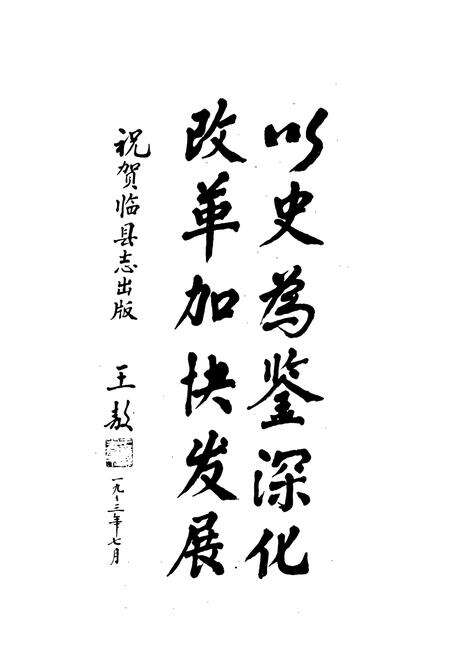 以史为鉴深化
改革加快发展
祝贺临县志出版
王敖
一九九三年七月